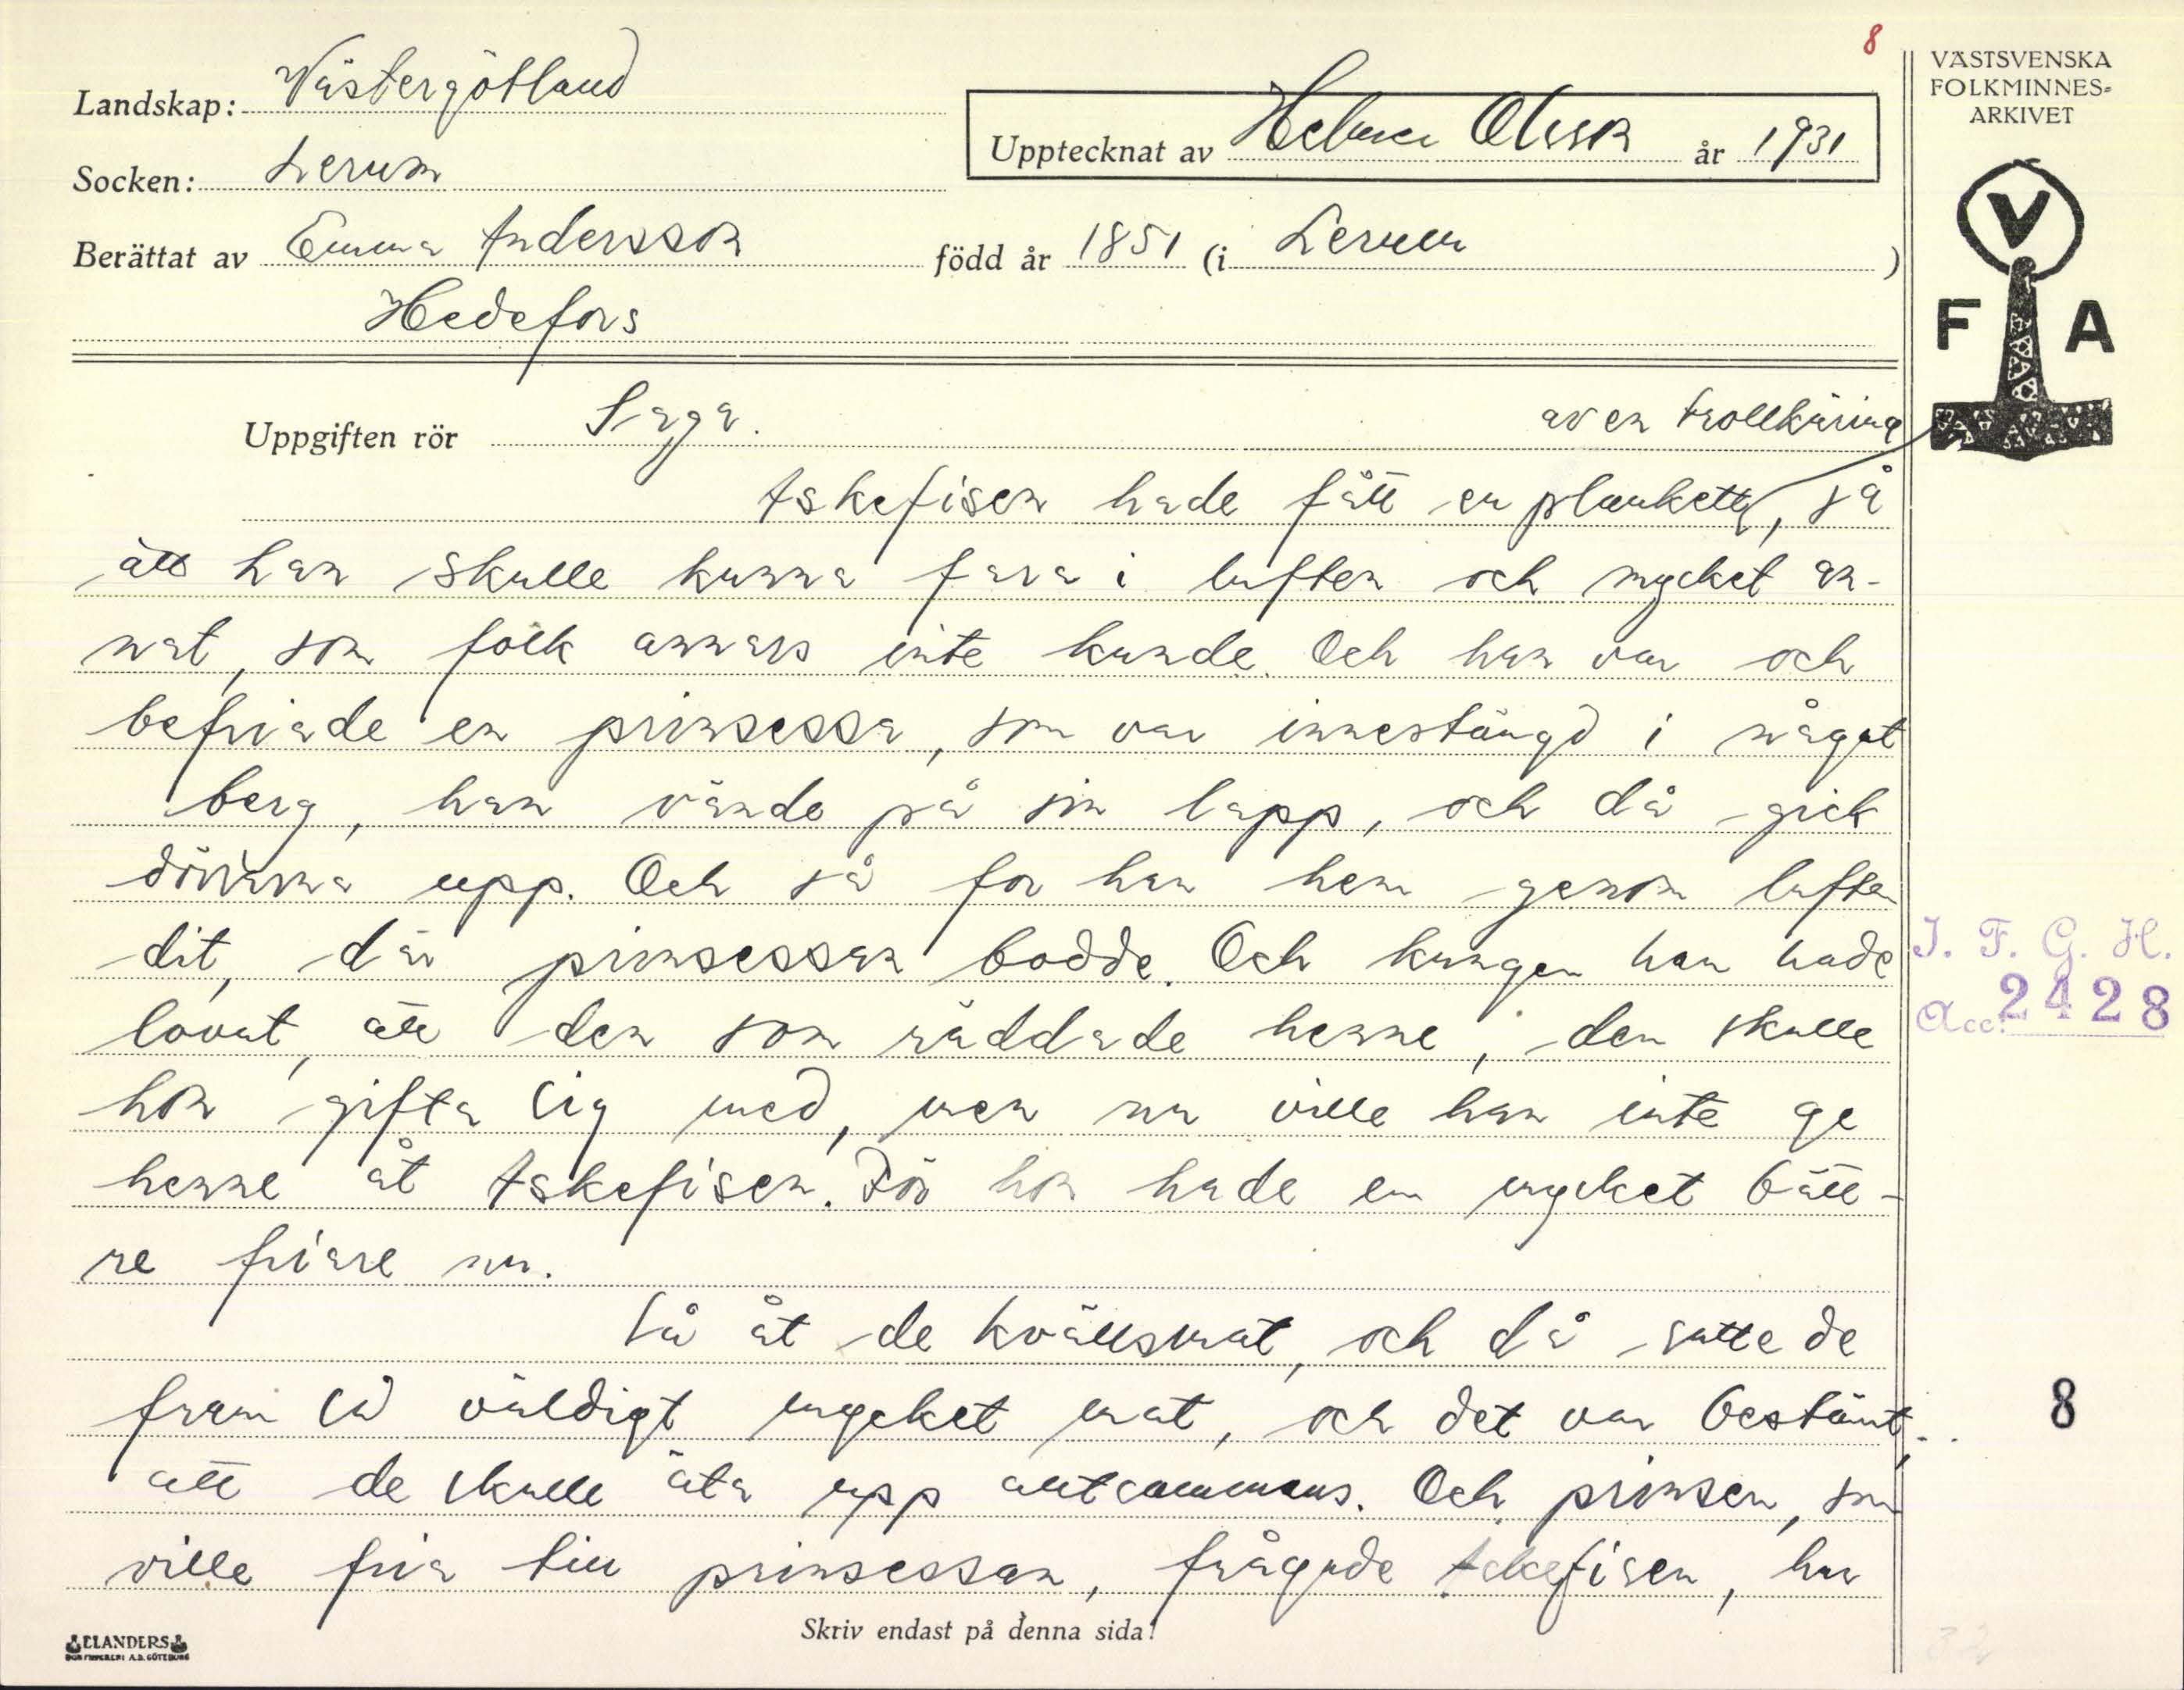 8
VÄSTSVENSKA
FOLKMINNES-
ARKIVET
Landskap: Västergötland
Upptecknat av Helmer Olsson år 1931
Socken: Lerum
Berättat av Emma Andersson född år 1851 (i Lerum )
Hedefors
V
F A
Uppgiften rör Saga.
av en trollkäring
Askefisen hade fått en plankett, så
att han skulle kunna fara i luften och mycket an-
nat, som folk annars inte kunde. Och han var och
befriade en prinsessa, som var innestängd i något
berg, han vände på sin lapp, och då gick
dörrarna upp. Och så for han hem genom luften
dit, där prinsessan bodde. Och kungen han hade
lovat, att den som räddade henne, den skulle
hon gifta sig med, men nu ville han inte ge
henne åt Askefisen. För hon hade en mycket bätt-
re friare nu.
Så åt de kvällsmat, och då satte de
fram så väldigt mycket mat, och det var bestämt,
att de skulle äta upp alltsammans. Och prinsen, som
ville fria till prinsessan, frågade Askefisen, hur
I. F. G. H.
Acc. 2428
8
Skriv endast på denna sida!
ELANDERS
BOKTRYCKERI A.B. GÖTEBORG
32